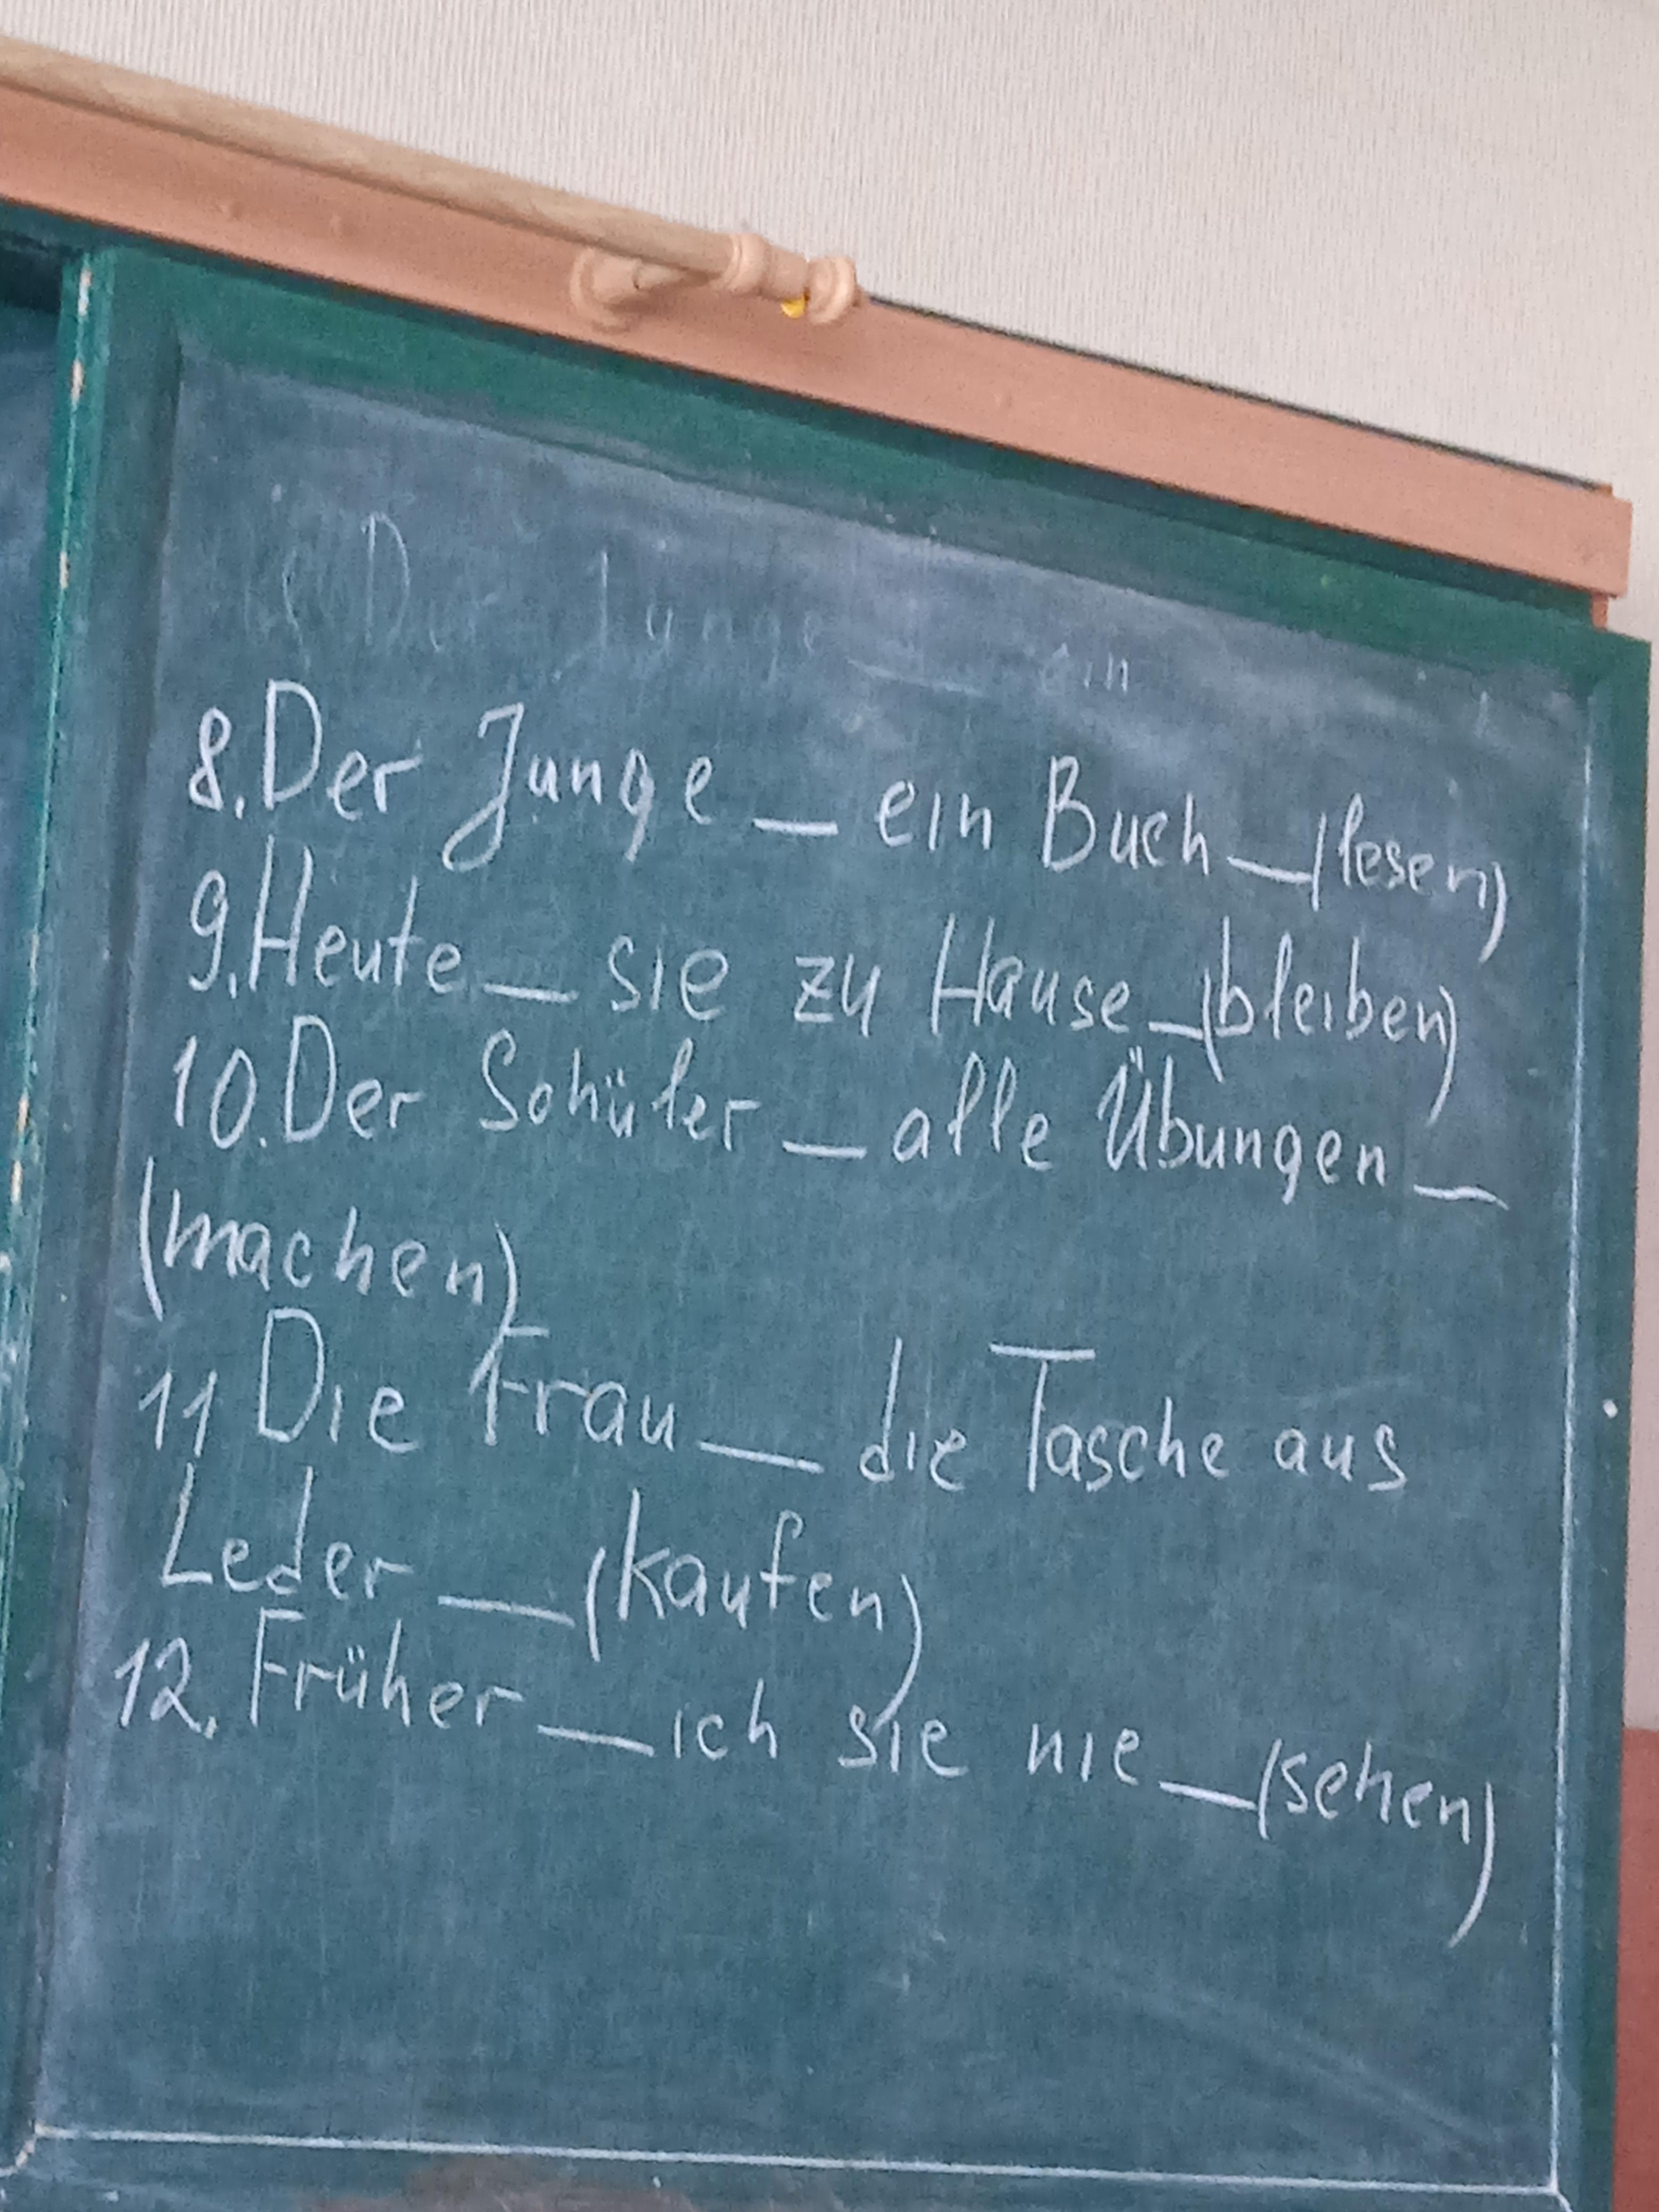 Der Junge _ ein
8. Der Junge _ ein Buch _ (lesen)
9. Heute _ sie zu Hause _ (bleiben)
10. Der Schüler _ alle Übungen _
(machen)
11 Die Frau _ die Tasche aus
Leder _ (kaufen)
12. Früher _ ich sie nie _ (sehen)